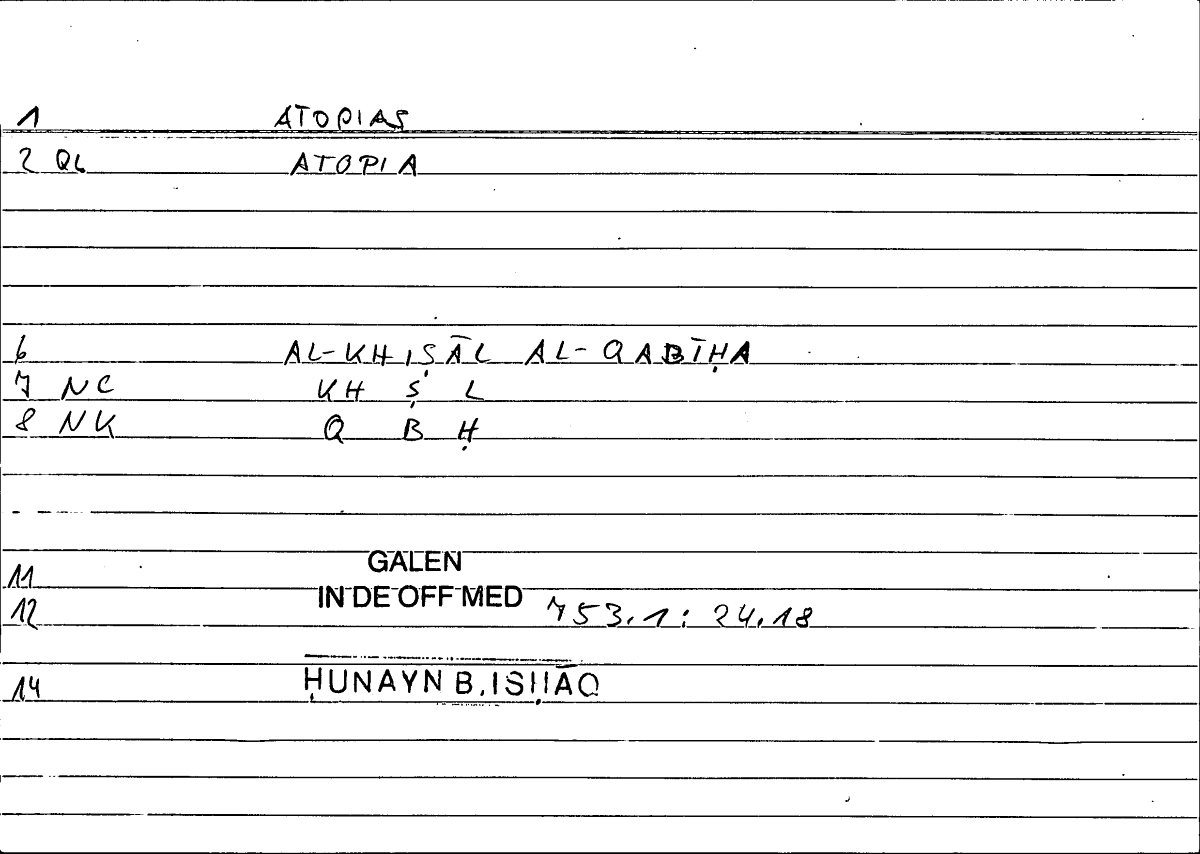 1 ATOPIAS
2 QL ATOPIA
6 AL-KHIṢĀL AL-QABĪḤA
7 NC KH Ṣ L
8 NK Q B Ḥ
11 GALEN
12 IN DE OFF MED 753.1 : 24.18
14 ḤUNAYN B. ISḤĀQ